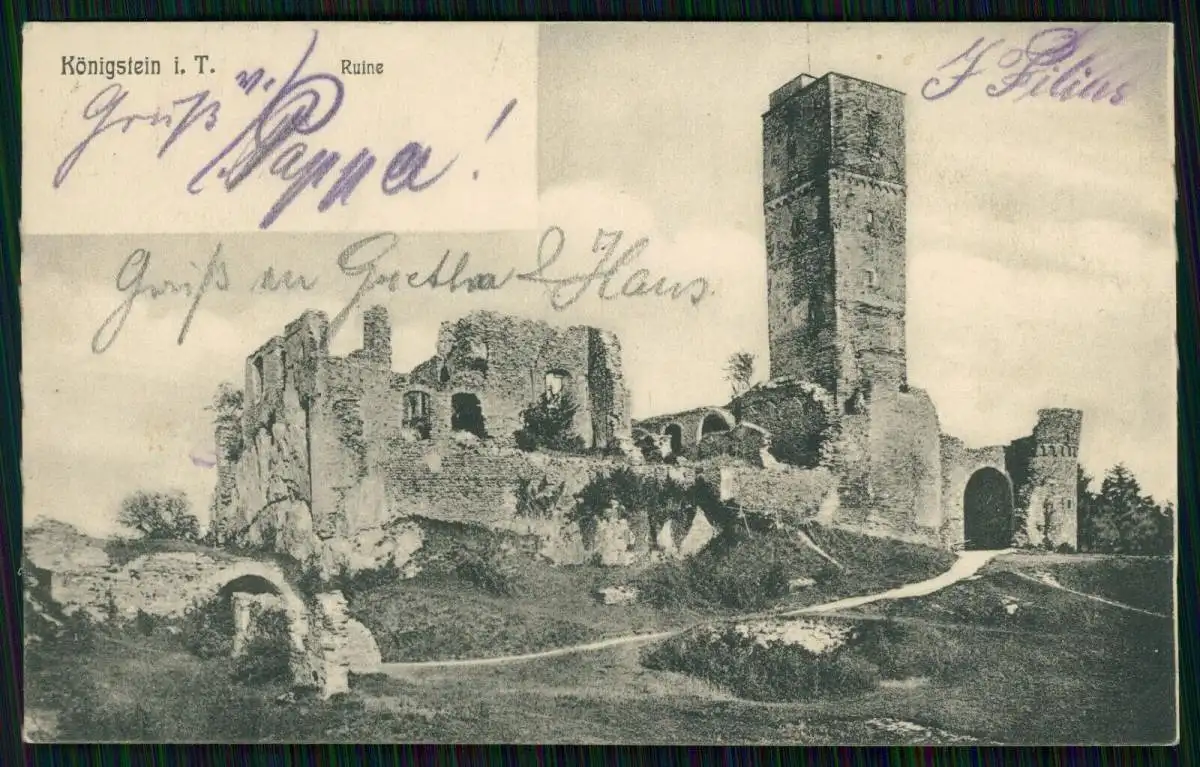 Königstein i. T. Ruine
Gruß v. Pappa!
Gruß an Gretha & Hans
J Filius